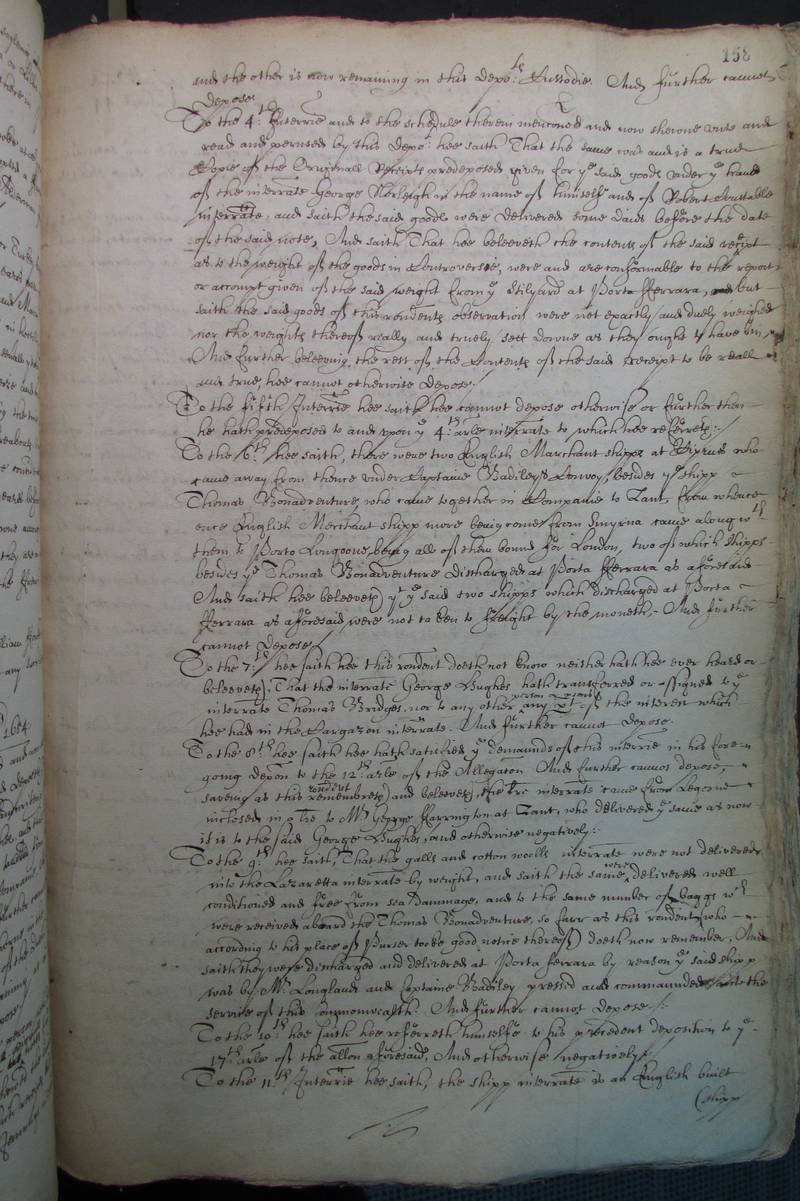 158
and the other is now remaining in this depo:ts Custodie. And further cannot
depose
To the 4th: Interrie and to the schedule therein mencioned and now shewne unto and
read and perused by this depo:t hee saith That the same was and is a true
Copie of the Originall Receipte predeposed given for ye said goods under ye hand
of the interrate George Norleigh in the name of himselfe and of Robert Constable
interrate, and saith the said goods were delivered some daies before the date
of the said note, And saith That hee beleeveth the contents of the said receipt
as to the weight of the goods in Controversie, were and are conformable to the report
or accompt given of the said weight from ye Stilyard at Porta Fferrara, but
saith the said goods of this rondents observation were not exactly and duely weighed
nor the weights thereof really and truely sett downe as they ought to have bin,
And further beleeving the rest of the Contents of the said receipt to be reall
and true, hee cannot otherwise depose./
To the fifth Interrie hee saith hee cannot depose otherwise or further then
he hath predeposed to and upon ye 4:th arle interrate to which hee referreth:/
To the 6th: hee saith, there were two English Marchant shipps at Ciprus who
came away from thence under Captaine Badileys Convoy, besides ye shipp
Thomas Bonadventure, who came together in Companie to Zant, from whence
one English Merchant shipp more being come from Smyrna came along wth
them to Porto Longoone, being all of them bound for London, two of which shipps
besides ye Thomas Bonadventure discharged at Porta Fferrara as aforesaid
And saith hee beleeveth yt ye said two shipps which discharged at Porta
Fferrara as aforesaid were not taken to freight by the moneth, And further
cannot depose./
To the 7:th hee saith hee this rondent doeth not know neither hath hee ever heard or
beleeveth, That the interrate George Hughes hath transferred or assigned to ye
interrate Thomas Bridges, nor to any other person or persons any pt of the interest which
hee had in the Cargazon interrate. And further cannot depose.
To the 8th hee saith hee hath satisfied ye demaunds of this interrie in his fore
going depon to the 12:th arle of the Allegaton And further cannot depose,
saveing as this rondent remembreth and beleeveth, the tre interrate came from Legorne
inclosed in a tre to Mr George Harrington at Zant, who delivered ye same as now
it is to the said George Hughes, and otherwise negatively:
To the 9:th hee saith, That the galls and cotton wooll interrate were not delivered
into the Lazaretta interrate by weight, and saith the same were delivered well
conditioned and free from sea dammage, and to the same number of baggs wch
were received aboard the Thomas Bonadventure, so farr as this rondent (who
according to his place of Purser tooke good notice thereof) doeth now remember, And
saith they were discharged and delivered at Porta Ferrara by reason ye said shipp
was by Mr. Longland and Captaine Badiley pressed and commaunded into the
service of this Commonwealth. And further cannot depose./:
To the 10:th hee saith hee referreth himselfe to his precedent deposition to ye
17:th arle of the allon aforesaid, And otherwise negatively./
To the 11th Interrie hee saith, the shipp interrate is an English built
(shipp